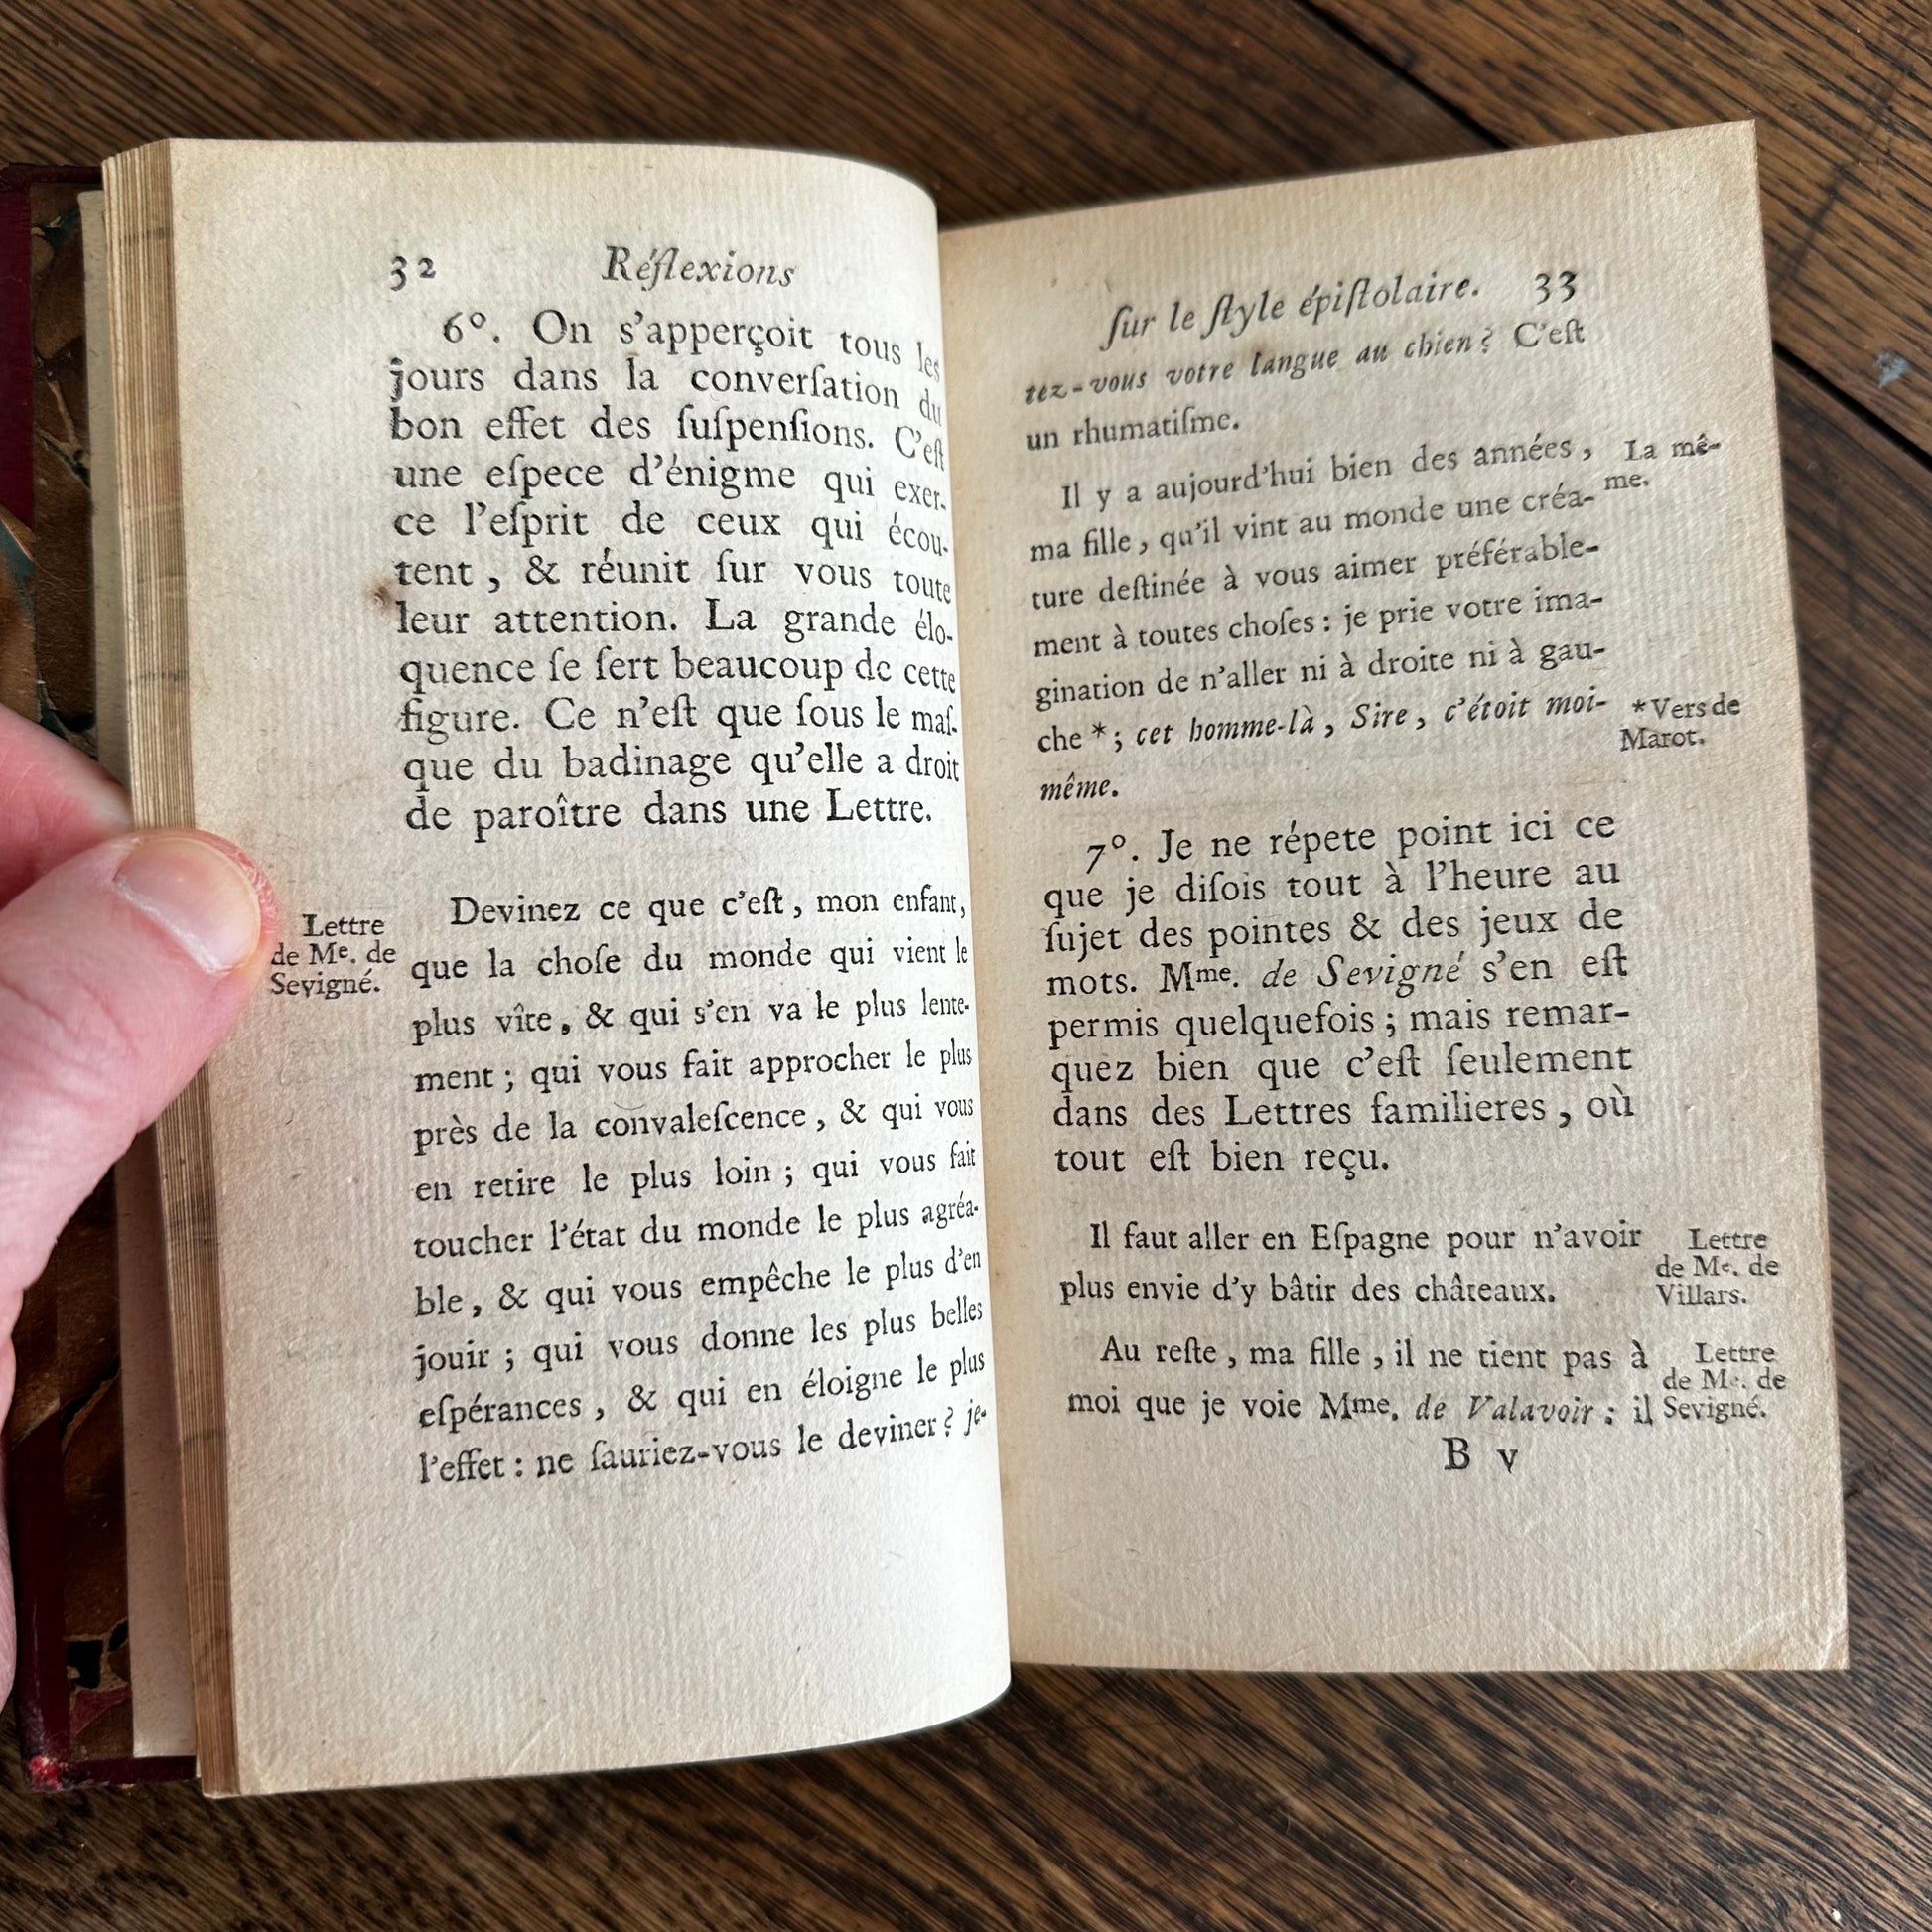 32 Réflexions
6°. On s'apperçoit tous les
jours dans la converſation du
bon effet des ſuſpenſions. C'eſt
une eſpece d'énigme qui exer-
ce l'eſprit de ceux qui écou-
tent, & réunit ſur vous toute
leur attention. La grande élo-
quence ſe ſert beaucoup de cette
figure. Ce n'eſt que ſous le maſ-
que du badinage qu'elle a droit
de paroître dans une Lettre.
Lettre
de Me. de
Sevigné.
Devinez ce que c'eſt, mon enfant,
que la choſe du monde qui vient le
plus vîte, & qui s'en va le plus lente-
ment; qui vous fait approcher le plus
près de la convaleſcence, & qui vous
en retire le plus loin; qui vous fait
toucher l'état du monde le plus agréa-
ble, & qui vous empêche le plus d'en
jouir; qui vous donne les plus belles
eſpérances, & qui en éloigne le plus
l'effet: ne ſauriez-vous le deviner? je-
ſur le ſtyle épiſtolaire. 33
tez-vous votre langue au chien? C'eſt
un rhumatiſme.
Il y a aujourd'hui bien des années,
ma fille, qu'il vint au monde une créa-
ture deſtinée à vous aimer préférable-
ment à toutes choſes: je prie votre ima-
gination de n'aller ni à droite ni à gau-
che*; cet homme-là, Sire, c'étoit moi-
même.
La mê-
me.
*Vers de
Marot.
7°. Je ne répete point ici ce
que je diſois tout à l'heure au
ſujet des pointes & des jeux de
mots. Mme. de Sevigné s'en eſt
permis quelquefois; mais remar-
quez bien que c'eſt ſeulement
dans des Lettres familieres, où
tout eſt bien reçu.
Il faut aller en Eſpagne pour n'avoir
plus envie d'y bâtir des châteaux.
Lettre
de Me. de
Villars.
Au reſte, ma fille, il ne tient pas à
moi que je voie Mme. de Valavoir: il
Lettre
de Me. de
Sevigné.
B v